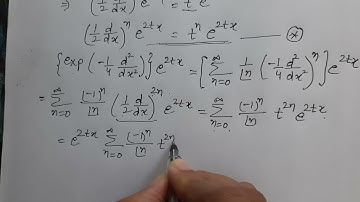 ⇒ (1/2 d/dx) e^{2tx} = t e^{2tx}
(1/2 d/dx)^n e^{2tx} = t^n e^{2tx} — ⊛
{exp(-1/4 d²/dx²)} e^{2tx} = [∑_{n=0}^{∞} 1/⌊n (-1/4 d²/dx²)^n] e^{2tx}
= ∑_{n=0}^{∞} (-1)^n/⌊n (1/2 d/dx)^{2n} e^{2tx} = ∑_{n=0}^{∞} (-1)^n/⌊n t^{2n} e^{2tx}.
= e^{2tx} ∑_{n=0}^{∞} (-1)^n/⌊n t^{2n}